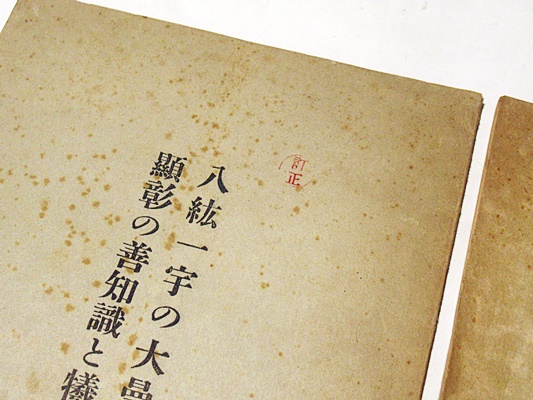 訂正
八紘一宇の大曼
顯彰の善知識と犧